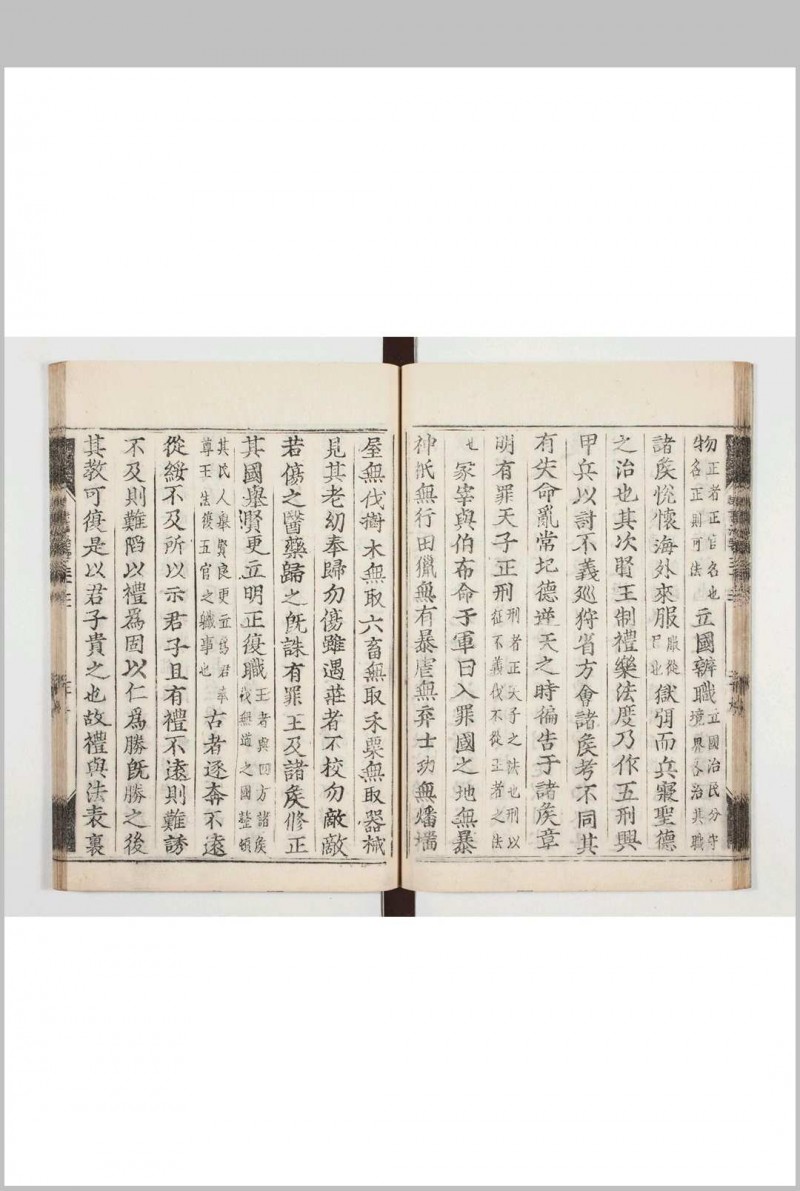 物正者正官名也名正則可法立國辨職立國治民分守境界各治其職
諸矦悅懷海外來服服從已也獄弭而兵寢聖德
之治也其次賢王制禮樂法度乃作五刑興
甲兵以討不義廵狩省方會諸矦考不同其
有失命亂常圮德逆天之時徧告于諸矦章
明有罪天子正刑刑者正天子之法也刑以征不義伐不從王者之法
也冢宰與伯布命于軍曰入罪國之地無暴
神祇無行田獵無有暴虐無弃士功無燔墻
屋無伐樹木無取六畜無取禾粟無取器械
見其老幼奉歸勿傷雖遇莊者不校勿敵敵
若傷之醫藥歸之旣誅有罪王及諸矦修正
其國舉賢更立明正復職王者與四方諸矦伐無道之國整頓
其民人舉賢良更立爲君奉尊王法復五官之職事也古者逐奔不遠
從綏不及所以示君子且有禮不遠則難誘
不及則難陷以禮爲固以仁爲勝旣勝之後
其教可復是以君子貴之也故禮與法表裏